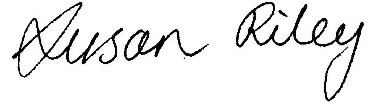 Susan Riley